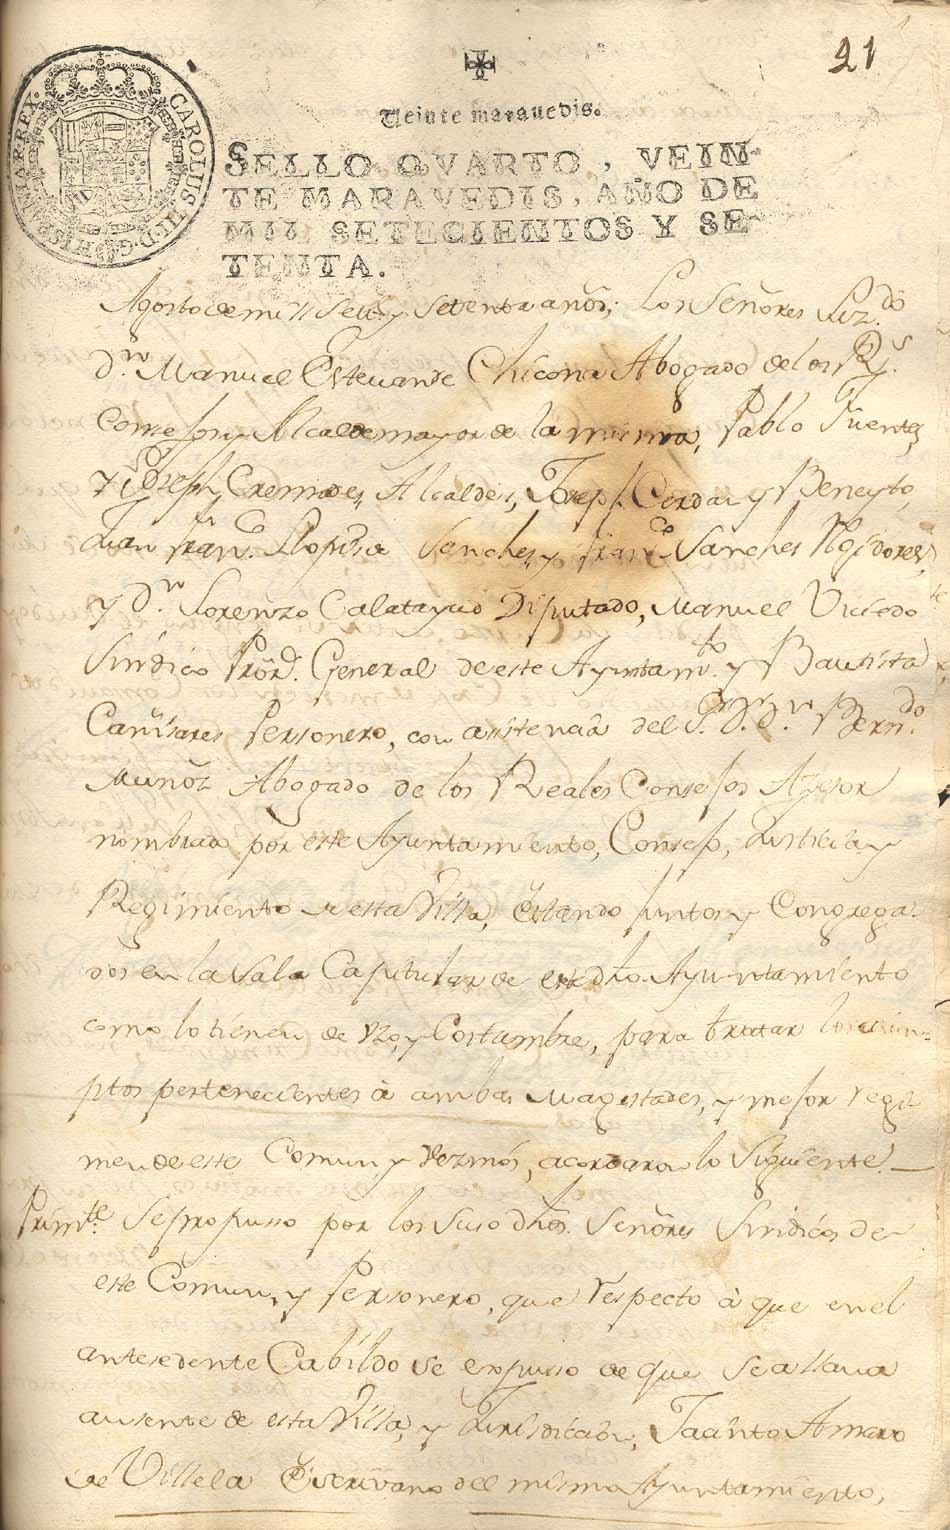 21
Veinte maravedis.
CAROLUS III. D. G. HISPANIAR. REX.
SELLO QVARTO, VEIN-
TE MARAVEDIS, AÑO DE
MIL SETECIENTOS Y SE-
TENTA.
Agosto de mill setts y setenta años; Los Señores Liz.do
d.n Manuel Estevan de Chicona Abogado de los R.s
Consejos y Alcalde mayor de la misma, Pablo Fuentes,
y Joseph Cremades Alcaldes, Joseph Cerdan y Beneyto,
Juan Fran.co Llopis Sanches y Fran.co Sanches Regidores,
y D.n Lorenzo Calatayud Diputado, Manuel Vicedo
Sindico Pror. General de este Ayuntam.to y Bautista
Cañisares Personero, con asistencia del S.r D.r D.n Bern.do
Muñoz Abogado de los Reales Consejos Azesor
nombrado por este Ayuntamiento, Consejo, Justicia y
Regimiento de esta Villa, Estando juntos y Congrega-
dos en la Sala Capitular de este dho Ayuntamiento
como lo tienen de Uzo, y Costumbre, para tratar los asum-
ptos pertenecientes à ambas Magestades, y mejor regi-
men de este Comun y Vezinos, acordaron lo Siguiente
Prim.te Se propusso por los suso dhos. Señores Sindicos de
este Comun, y Personero, que respecto à que en el
antesedente Cabildo se expuso de que se allava
ausente de esta Villa, y Jurisdicion, Jacinto Amaro
de Villela Escrivano del mismo Ayuntamiento,